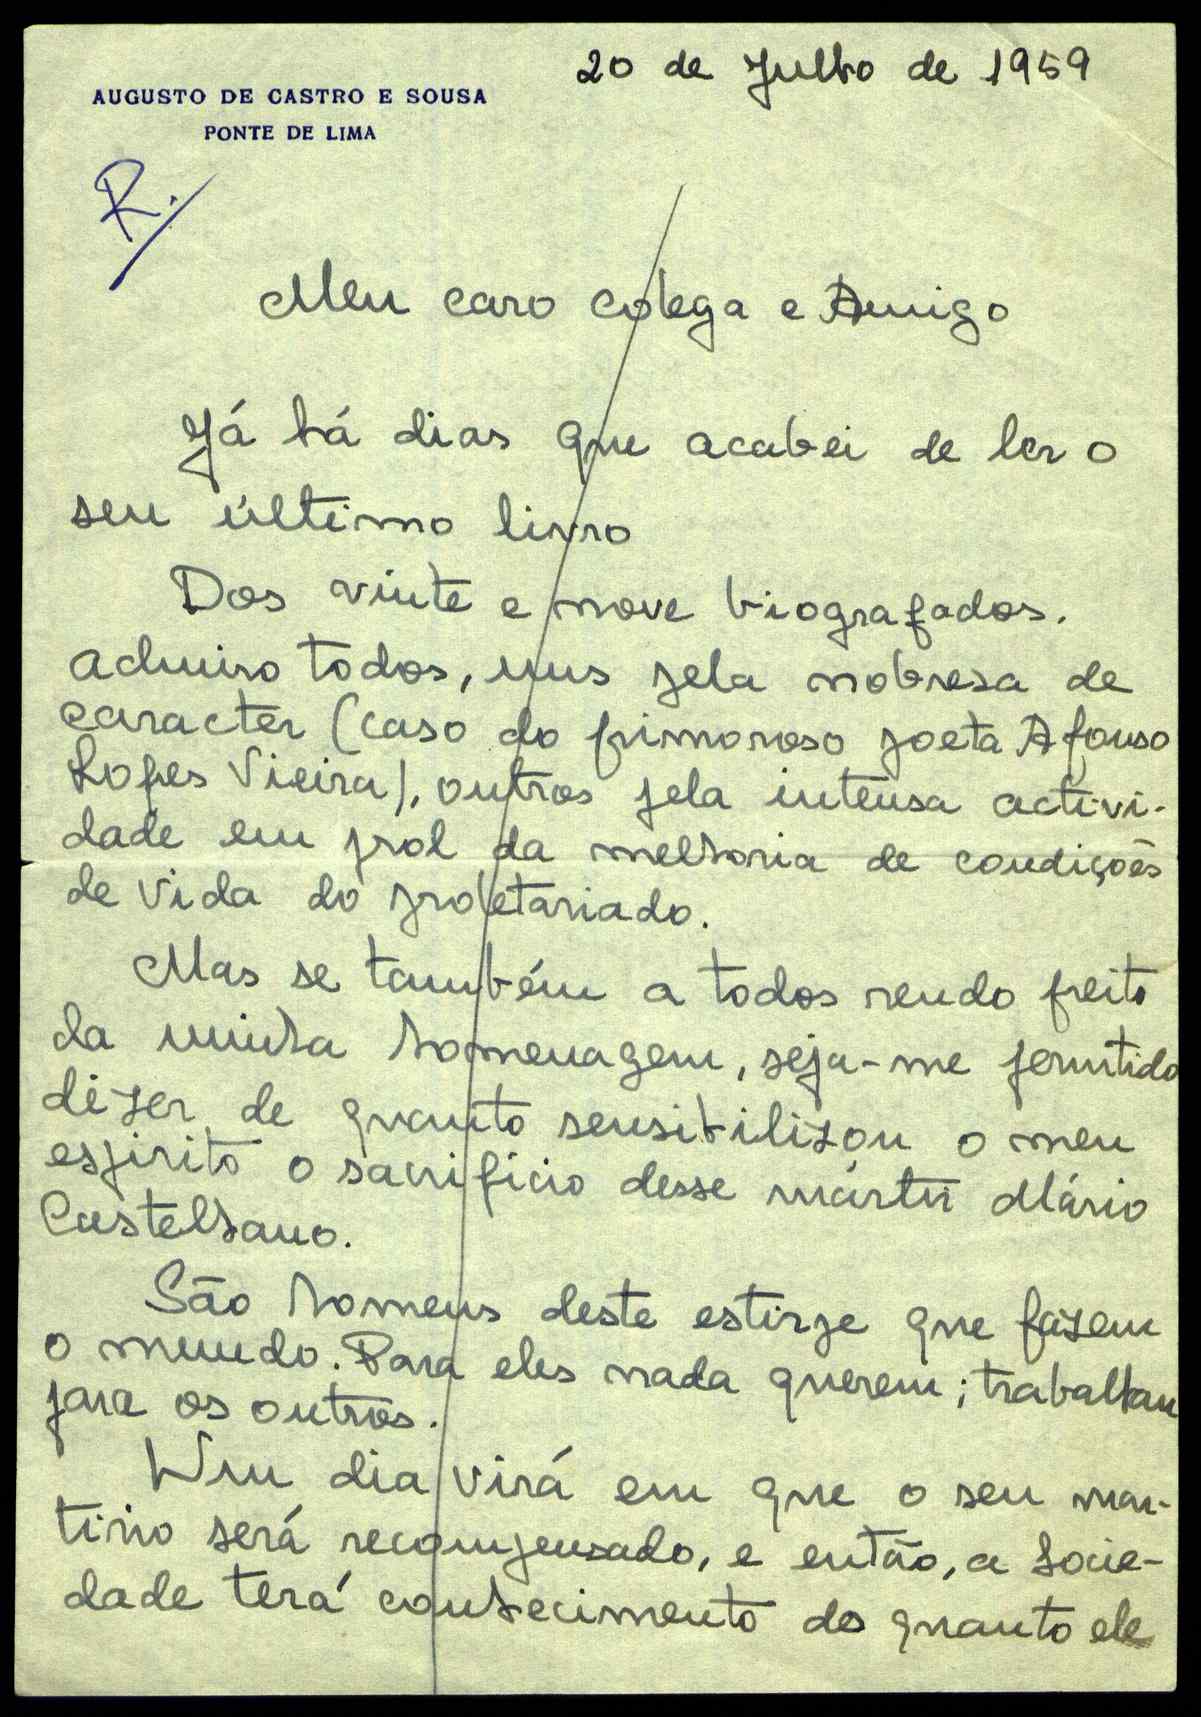 20 de Julho de 1959
AUGUSTO DE CASTRO E SOUSA
PONTE DE LIMA
R.
Meu caro colega e Amigo
Já há dias que acabei de ler o
seu último livro
Dos vinte e nove biografados.
admiro todos, uns pela nobresa de
caracter (caso do primoroso poeta Afonso
Lopes Vieira), outros pela intensa activi-
dade em prol da melhoria de condições
de vida do proletariado.
Mas se também a todos rendo preito
da minha homenagem, seja-me permitido
dizer de quanto sensibilizou o meu
espirito o sacrificio desse mártir Mário
Castelhano.
São homens deste estirpe que fazem
o mundo. Para eles nada querem; trabalham
para os outros.
Um dia virá em que o seu mar-
tirio será recompensado, e então, a socie-
dade terá conhecimento do quanto ele